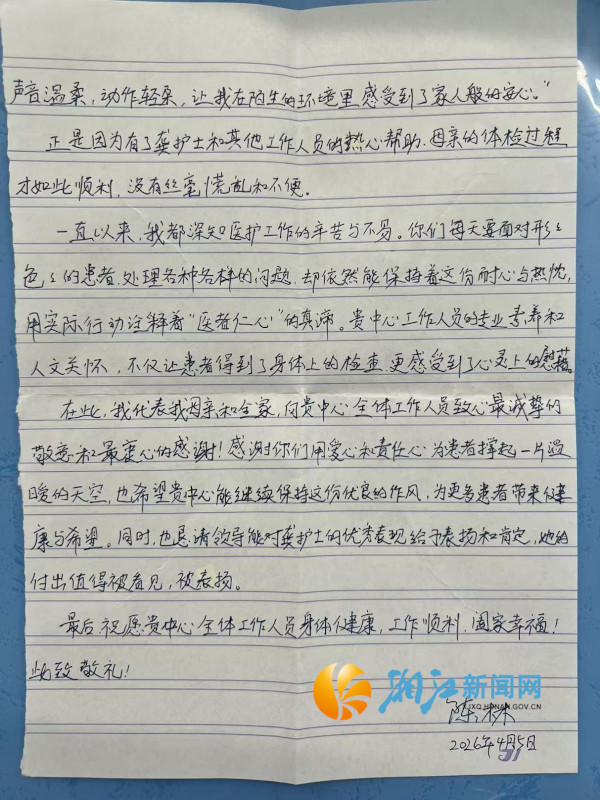 声音温柔，动作轻柔，让我在陌生的环境里感受到了家人般的安心。”
正是因为有了龚护士和其他工作人员的热心帮助，母亲的体检过程
才如此顺利，没有丝毫慌乱和不便。
一直以来，我都深知医护工作的辛苦与不易。你们每天要面对形形
色色的患者，处理各种各样的问题，却依然能保持着这份耐心与热忱，
用实际行动注释着“医者仁心”的真谛。贵中心工作人员的专业素养和
人文关怀，不仅让患者得到了身体上的检查，更感受到了心灵上的慰藉。
在此，我代表我母亲和全家，向贵中心全体工作人员致心最诚挚的
敬意和最衷心的感谢！感谢你们用爱心和责任心为患者撑起一片温
暖的天空，也希望贵中心能继续保持这份优良的作风，为更多患者带来健
康与希望。同时，也恳请领导能对龚护士的优秀表现给予表扬和肯定，她的
付出值得被看见，被表扬。
最后，祝愿贵中心全体工作人员身体健康，工作顺利，阖家幸福！
此致敬礼！
湘江新闻网
JXQ.HUNAN.GOV.CN
陈林
2026年4月5日